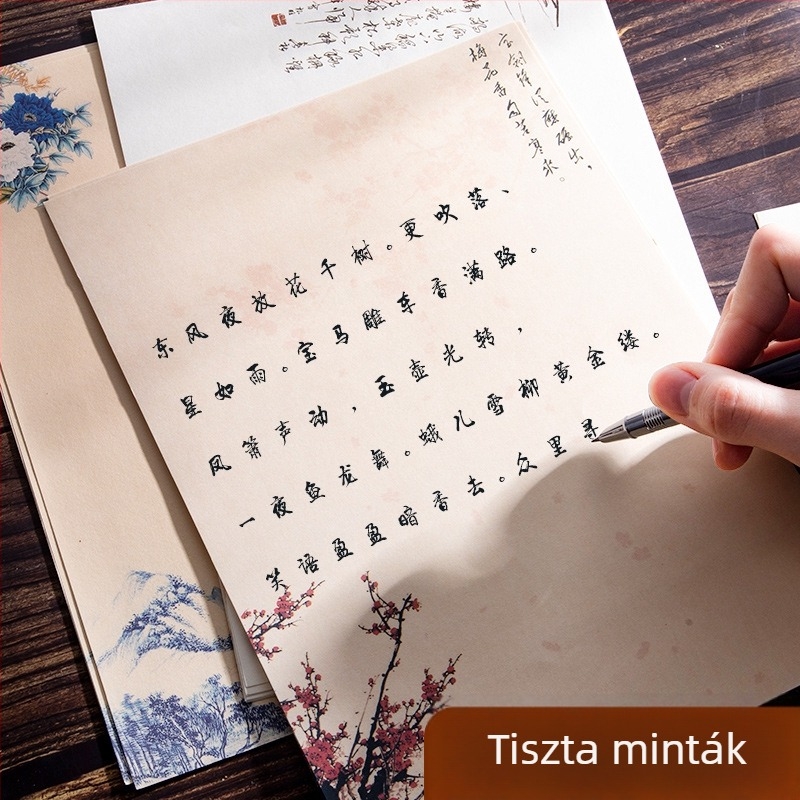 宝剑锋从磨砺出，
梅花香自苦寒来。
东风夜放花千树。更吹落、
星如雨。宝马雕车香满路。
凤箫声动，玉壶光转，
一夜鱼龙舞。蛾儿雪柳黄金缕。
笑语盈盈暗香去。众里寻
Tiszta minták